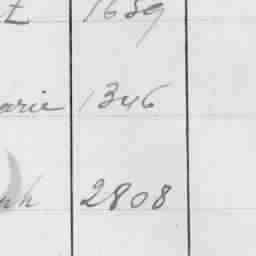 t 1659
arie 1346
ph 2808